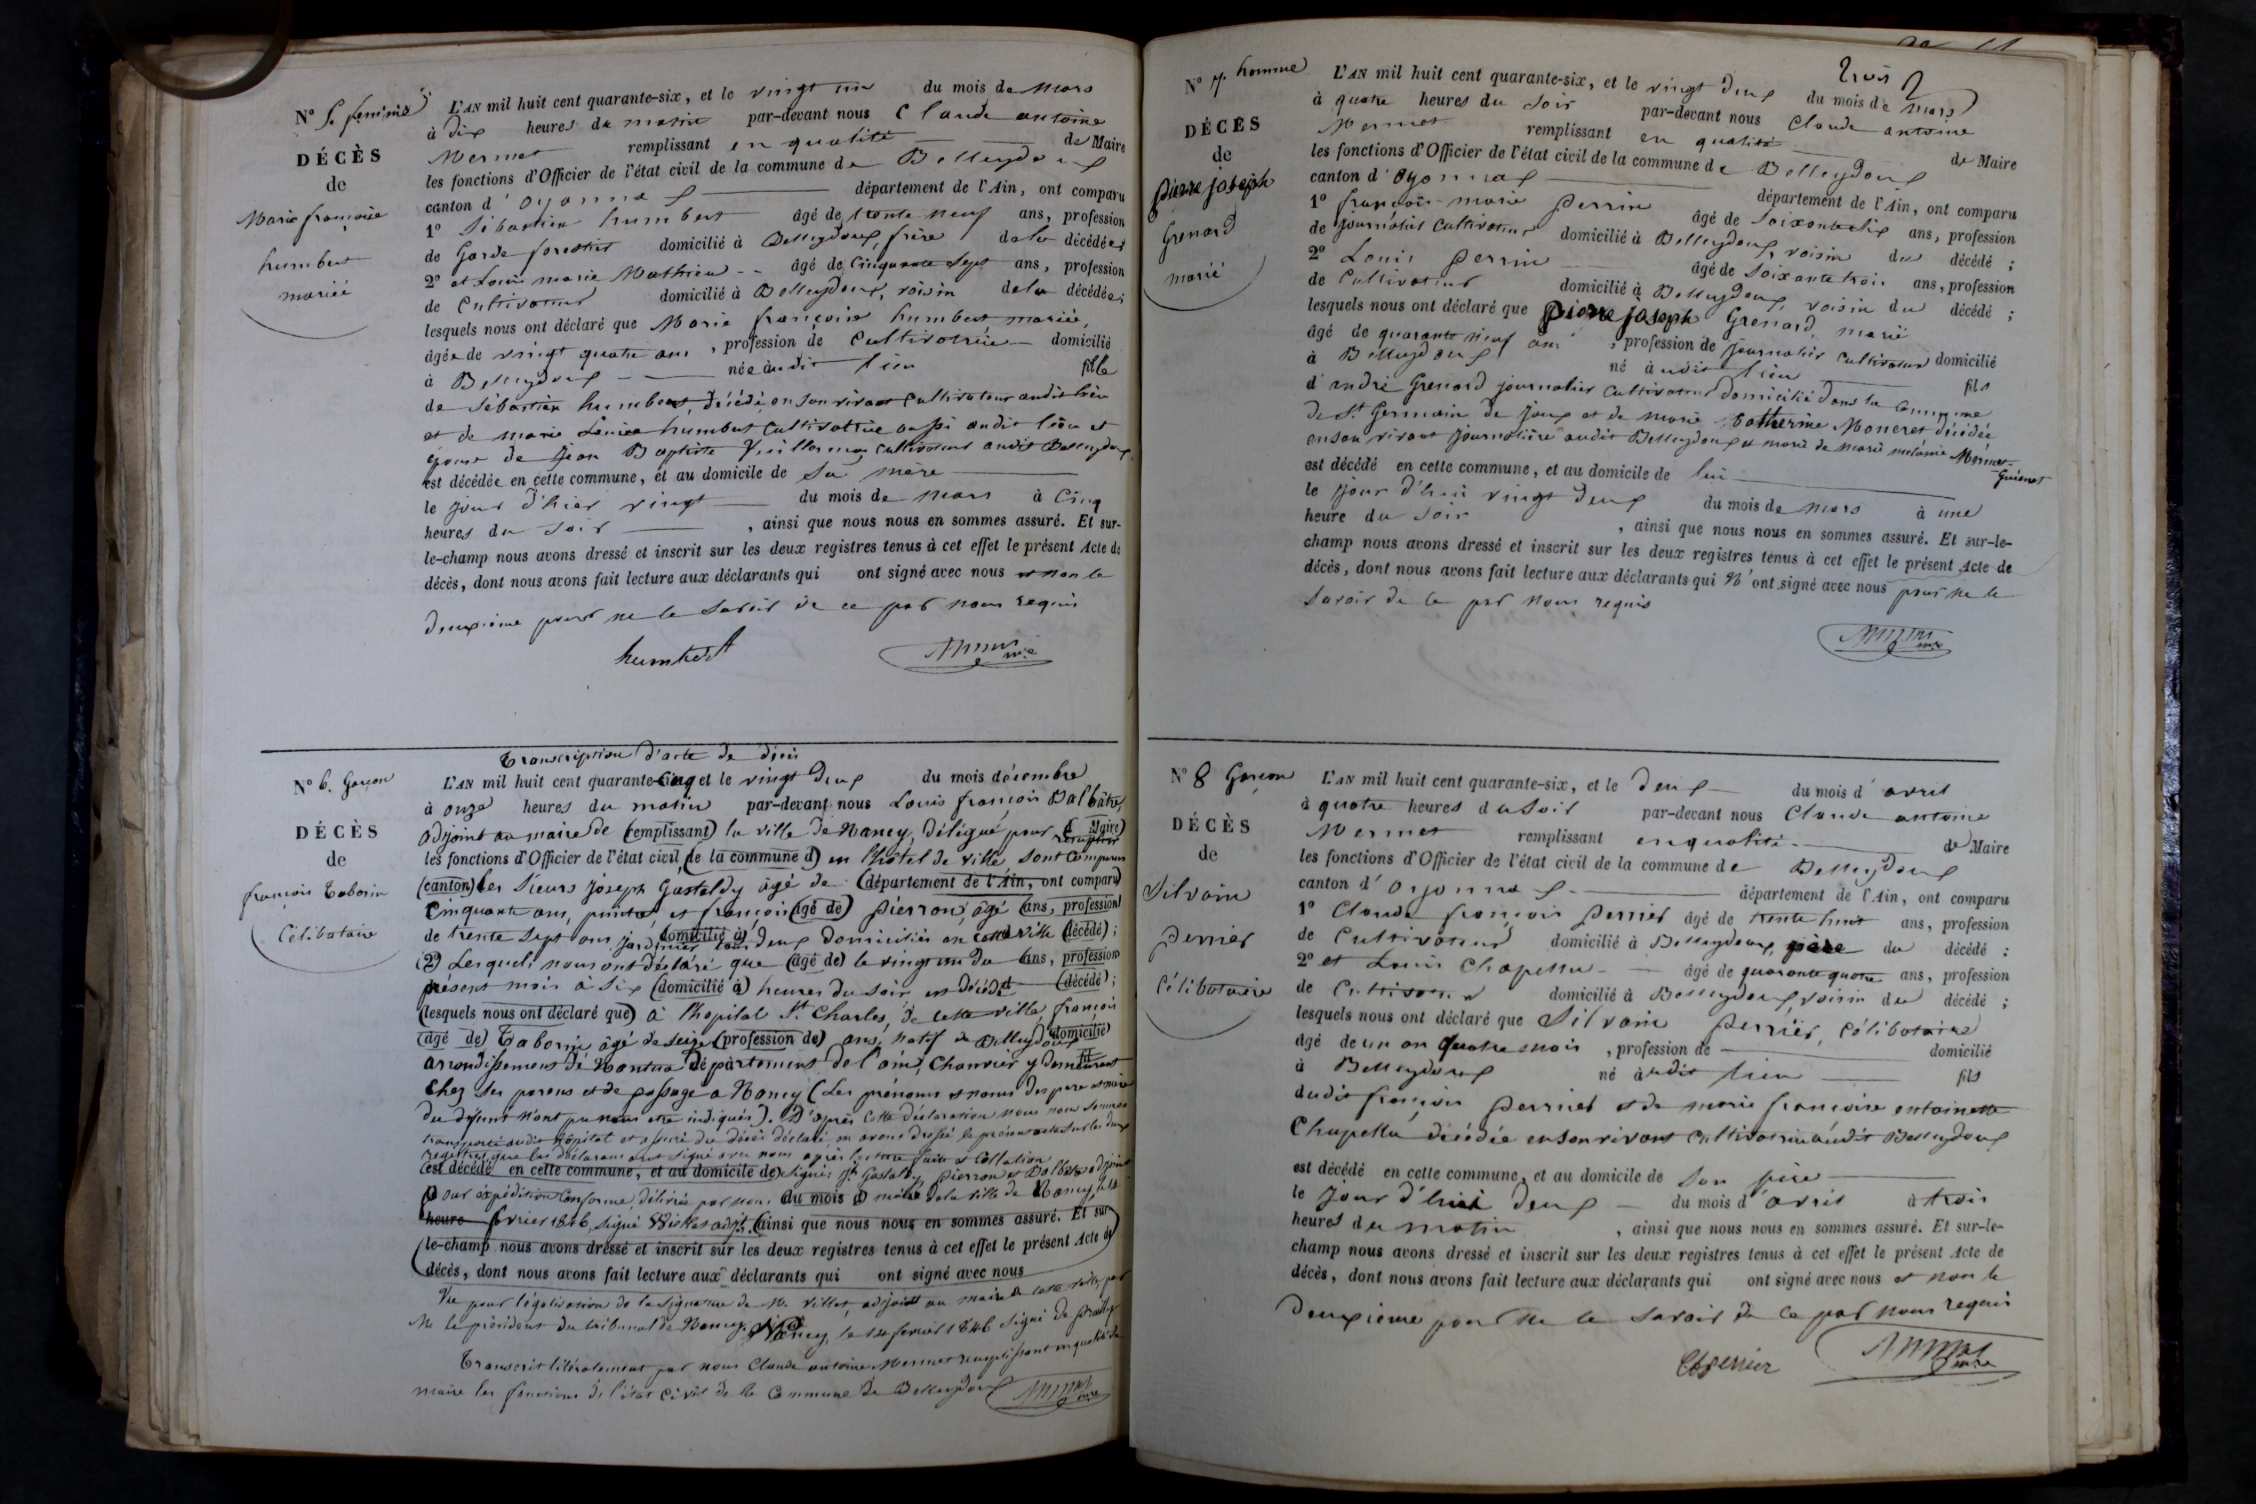 N° 5. femme
DÉCÈS
de
Marie françoise
humbert
mariée
L'AN mil huit cent quarante-six, et le vingt un du mois de Mars
à dix heures du matin par-devant nous Claude antoine
Mermet remplissant en qualité de Maire
les fonctions d'Officier de l'état civil de la commune de Belleydoux
canton d'Oyonnax département de l'Ain, ont comparu
1° Sébastien humbert âgé de trente neuf ans, profession
de Garde forestier domicilié à Belleydoux, frère de la décédée;
2° et Louis marie Mathieu -- âgé de Cinquante sept ans, profession
de Cultivateur domicilié à Belleydoux, voisin de la décédée;
lesquels nous ont déclaré que Marie françoise humbert mariée,
âgée de vingt quatre ans, profession de Cultivatrice domicilié
à Belleydoux née audit lieu fille
de Sébastien humbert, décédé en son vivant Cultivateur audit lieu
et de marie humbert Cultivatrice aussi audit lieu et
épouse de Jean Baptiste Vuillermoz Cultivateur audit Belleydoux
est décédée en cette commune, et au domicile de Sa mère
le jour d'hier vingt du mois de Mars à Cinq
heures du Soir, ainsi que nous nous en sommes assuré. Et sur-
le-champ nous avons dressé et inscrit sur les deux registres tenus à cet effet le présent Acte de
décès, dont nous avons fait lecture aux déclarants qui ont signé avec nous et non le
deuxième pour ne le savoir de ce par nous requis
humbert Mermet mre
Transcription d'acte de décès
N° 6. Garçon
DÉCÈS
de
françois Taborin
Célibataire
L'AN mil huit cent quarante-cinq et le vingt deux du mois décembre
à onze heures du matin par-devant nous Louis françois Balbâtre
adjoint au maire de (remplissant) la ville de Nancy, délégué pour (de Maire) remplir
les fonctions d'Officier de l'état civil (de la commune d) en l'hôtel de ville sont comparus
(canton) les Sieurs Joseph Gastaldy âgé de (département de l'Ain, ont comparu)
Cinquante ans, peintre et françois (âgé de) pierron, âgé (ans, profession)
de trente sept ans jardinier tous (domicilié à) deux domiciliés en cette ville (décédé);
(2°) Lesquels nous ont déclaré que (âgé de) le vingt un du (ans, profession)
présent mois à Six (domicilié à) heures du Soir est décédé (décédé);
(lesquels nous ont déclaré que) à l'hopital St Charles, de cette ville, françois
(âgé de) Taborin âgé de seize (profession de) ans, natif de Belleydoux (domicilié)
arrondissement de Nantua département de l'ain, Chanvrier y demeurant
Chez ses parens et de passage a Nancy (Les prénoms et noms des pere et mère
du défunt n'ont pu nous etre indiqués). D'après Cette déclaration nous nous sommes
transporté audit hôpital et assuré du décès déclaré, en avons dressé le présent acte sur les deux
registres que les déclarans ont signé avec nous après lecture faite et Collation
(est décédé en cette commune, et au domicile de) signés Jh Gastaldy, pierron et Balbatre adjoint
Pour expédition Conforme, délivrée par nous (du mois d) maire de la ville de Nancy, le
(heure) fevrier 1846, signé adjt. (ainsi que nous nous en sommes assuré. Et sur
le-champ nous avons dressé et inscrit sur les deux registres tenus à cet effet le présent Acte de)
décès, dont nous avons fait lecture aux déclarants qui ont signé avec nous
Vu pour légalisation de la signature de M. adjoint au maire de cette ville, par
M. le président du tribunal de Nancy. Nancy, le fevrier 1846 signé
Transcrit litéralement par nous Claude antoine Mermet remplissant en qualité de
maire les fonctions de l'état Civil de la Commune de Belleydoux Mermet mre
trois
N° 7. homme
DÉCÈS
de
Pierre joseph
Grenard
marié
L'AN mil huit cent quarante-six, et le vingt deux du mois de Mars
à quatre heures du Soir par-devant nous Claude antoine
Mermet remplissant en qualité de Maire
les fonctions d'Officier de l'état civil de la commune de Belleydoux
canton d'Oyonnax département de l'Ain, ont comparu
1° françois-marie perrin âgé de Soixante dix ans, profession
de journalier Cultivateur domicilié à Belleydoux, voisin du décédé;
2° Louis perrin âgé de Soixante trois ans, profession
de Cultivateur domicilié à Belleydoux, voisin du décédé;
lesquels nous ont déclaré que pierre joseph Grenard, marié
âgé de quarante neuf ans, profession de journalier Cultivateur domicilié
à Belleydoux né audit lieu fils
d'andré Grenard journalier Cultivateur domicilié dans la Commune
de St Germain de joux et de marie Catherine Moneret décédée
en son vivant journalière audit Belleydoux et marié de Marie mélanie Mermet-
Guienot
est décédé en cette commune, et au domicile de lui
le jour d'hui vingt deux du mois de Mars à une
heure du Soir, ainsi que nous nous en sommes assuré. Et sur-le-
champ nous avons dressé et inscrit sur les deux registres tenus à cet effet le présent Acte de
décès, dont nous avons fait lecture aux déclarants qui N'ont signé avec nous pour ne le
savoir de ce par nous requis
Mermet mre
N° 8 Garçon
DÉCÈS
de
Silvain
perrier
Célibataire
L'AN mil huit cent quarante-six, et le deux du mois d'avril
à quatre heures du Soir par-devant nous Claude antoine
Mermet remplissant en qualité de Maire
les fonctions d'Officier de l'état civil de la commune de Belleydoux
canton d'Oyonnax département de l'Ain, ont comparu
1° Claude françois perrier âgé de trente huit ans, profession
de Cultivateur domicilié à Belleydoux, père du décédé;
2° et Louis Chapellu âgé de quarante quatre ans, profession
de Cultivateur domicilié à Belleydoux, voisin du décédé;
lesquels nous ont déclaré que Silvain perrier, Célibataire
âgé de un an quatre mois, profession de domicilié
à Belleydoux né audit lieu fils
dudit françois perrier et de marie françoise antoinette
Chapellu décédée en son vivant Cultivatrice audit Belleydoux
est décédé en cette commune, et au domicile de son père
le jour d'hui deux du mois d'avril à trois
heures du matin, ainsi que nous nous en sommes assuré. Et sur-le-
champ nous avons dressé et inscrit sur les deux registres tenus à cet effet le présent Acte de
décès, dont nous avons fait lecture aux déclarants qui ont signé avec nous et non le
deuxième pour ne le savoir de ce par nous requis
perrier Mermet mre